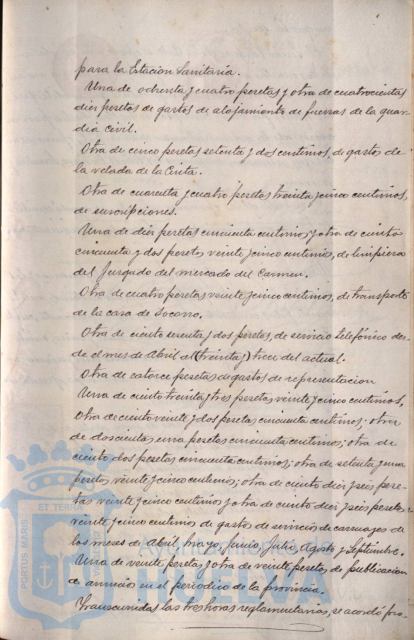 para la Estación Sanitaria.
Una de ochenta y cuatro pesetas y otra de cuatrocientas
diez pesetas de gastos de alojamiento de fuerzas de la guar-
dia civil.
Otra de cinco pesetas setenta y dos centimos de gastos de
la velada de la Cinta.
Otra de cuarenta y cuatro pesetas treinta y cinco centimos,
de suscripciones.
Una de diez pesetas cincuenta centimos y otra de ciento
cincuenta y dos pesetas veinte y cinco centimos, de limpieza
del Juzgado del mercado del Carmen.
Otra de cuatro pesetas veinte y cinco centimos, de transporte
de la casa de Socorro.
Otra de ciento sesenta y dos pesetas, de servicio telefónico des-
de el mes de Abril al (treinta y) trece del actual.
Otra de catorce pesetas de gastos de representacion
Una de ciento treinta y tres pesetas veinte y cinco centimos,
otra de ciento veinte y dos pesetas cincuenta centimos; otra
de doscientas una pesetas cincuenta centimos; otra de
ciento dos pesetas cincuenta centimos; otra de setenta y una
pesetas veinte y cinco centimos; otra de ciento diez y seis pese-
tas veinte y cinco centimos y otra de ciento diez y seis pesetas
veinte y cinco centimos de gastos de servicio de carruages de
los meses de Abril, Mayo, Junio, Julio, Agosto y Septiembre.
Una de veinte pesetas y otra de veinte pesetas de publicacion
de anuncio en el periodico de la provincia.
Transcurridas las tres horas reglamentarias, se acordó pro-
PORTUS MARIS
ET TERRA
HUELVA